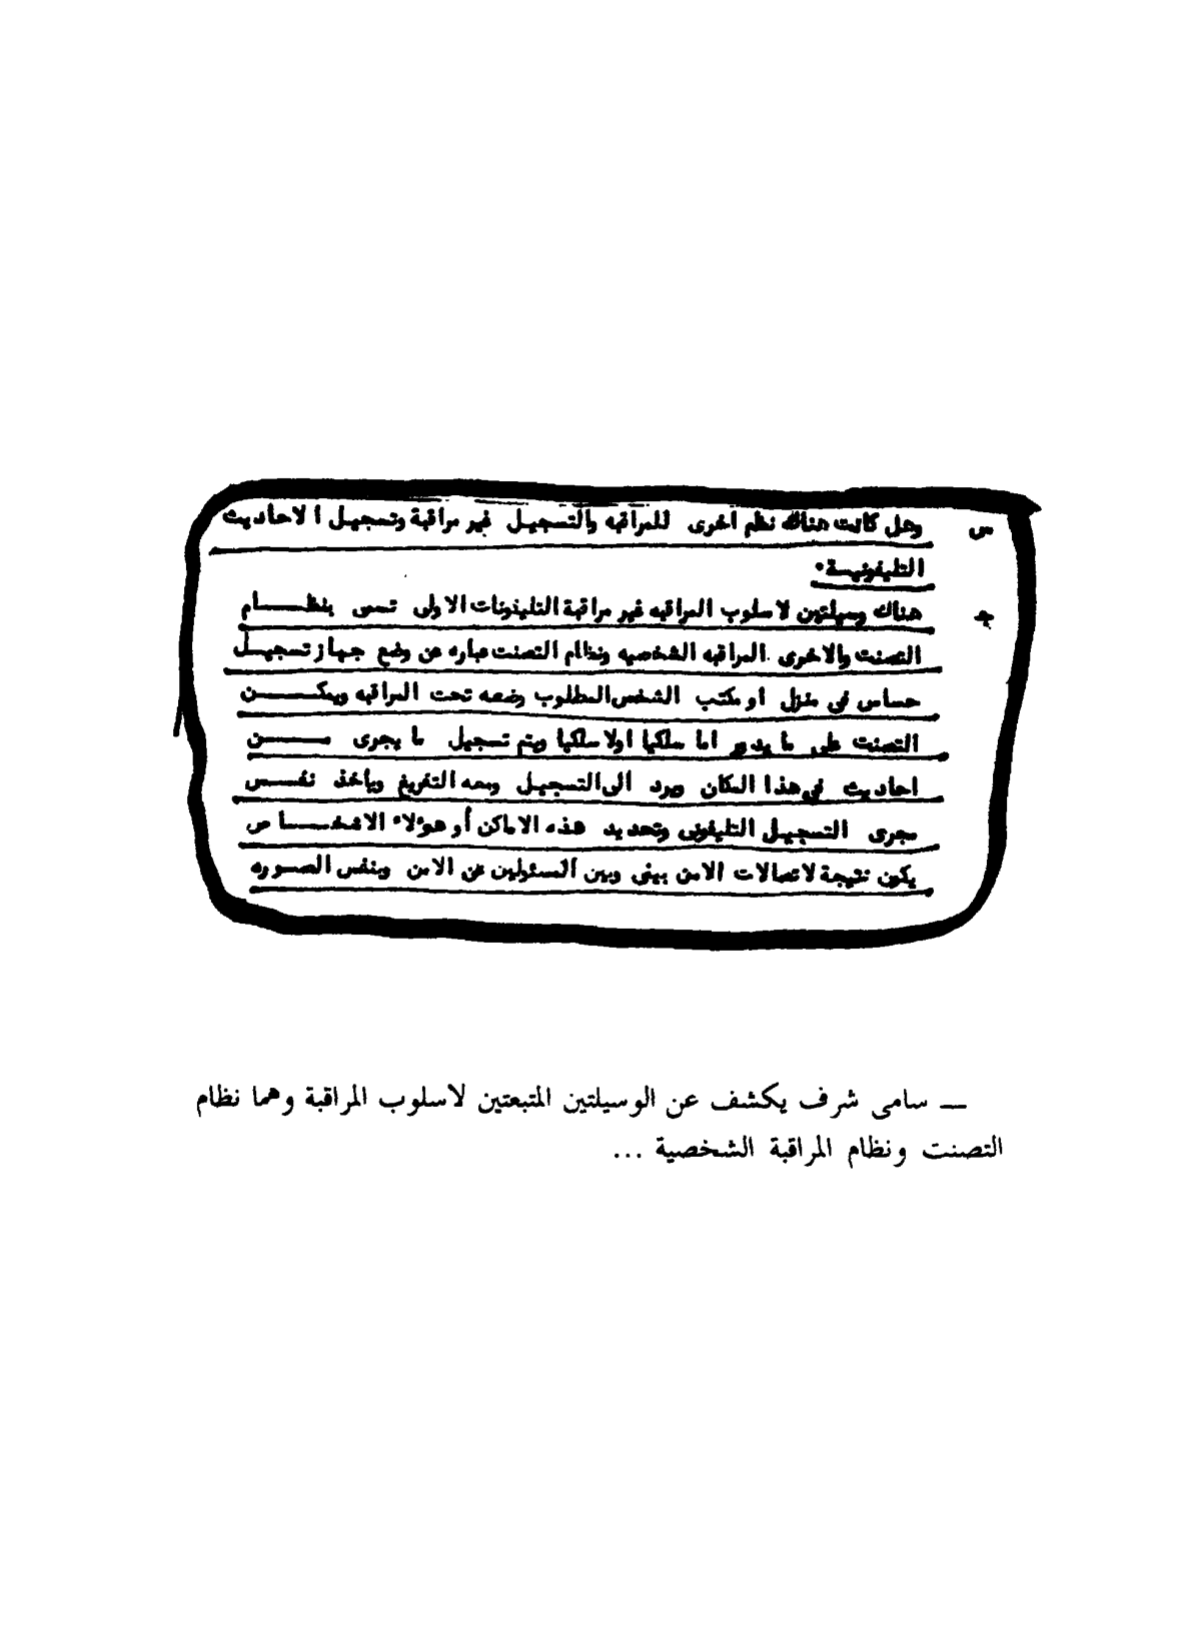 س وهل كانت هناك نظم اخرى للمراقبه والتسجيل غير مراقبة وتسجيل الاحاديث
التليفونيسة٠
ج هناك وسيلتين لاسلوب المراقبه غير مراقبة التليفونات الاولى تسمى بنظـــام
التصنت والاخرى المراقبه الشخصيه ونظام التصنت عباره عن وضع جهاز تسجيـل
حساس فى منزل او مكتب الشخص المطلوب وضعه تحت المراقبه ويمكـــن
التصنت على ما يدور اما سلكيا اولا سلكيا ويتم تسجيل ما يجرى مـــن
احاديث فى هذا المكان ويرد الى التسجيل ومعه التفريغ وياخذ نفــس
مجرى التسجيل التليفونى وتحديد هذه الاماكن أو هولاء الاشخــاص
يكون نتيجة لاتصالات الامن بينى وبين المسئولين عن الامن وبنفس الصــوره
— سامى شرف يكشف عن الوسيلتين المتبعتين لاسلوب المراقبة وهما نظام
التصنت ونظام المراقبة الشخصية ...